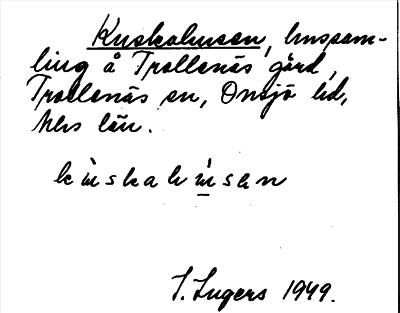 Kuskahusen, hussam-
ling å Trollenäs gård,
Trollenäs sn, Onsjö hd,
Mhs län.
kuskahusen
I. Ingers 1949.